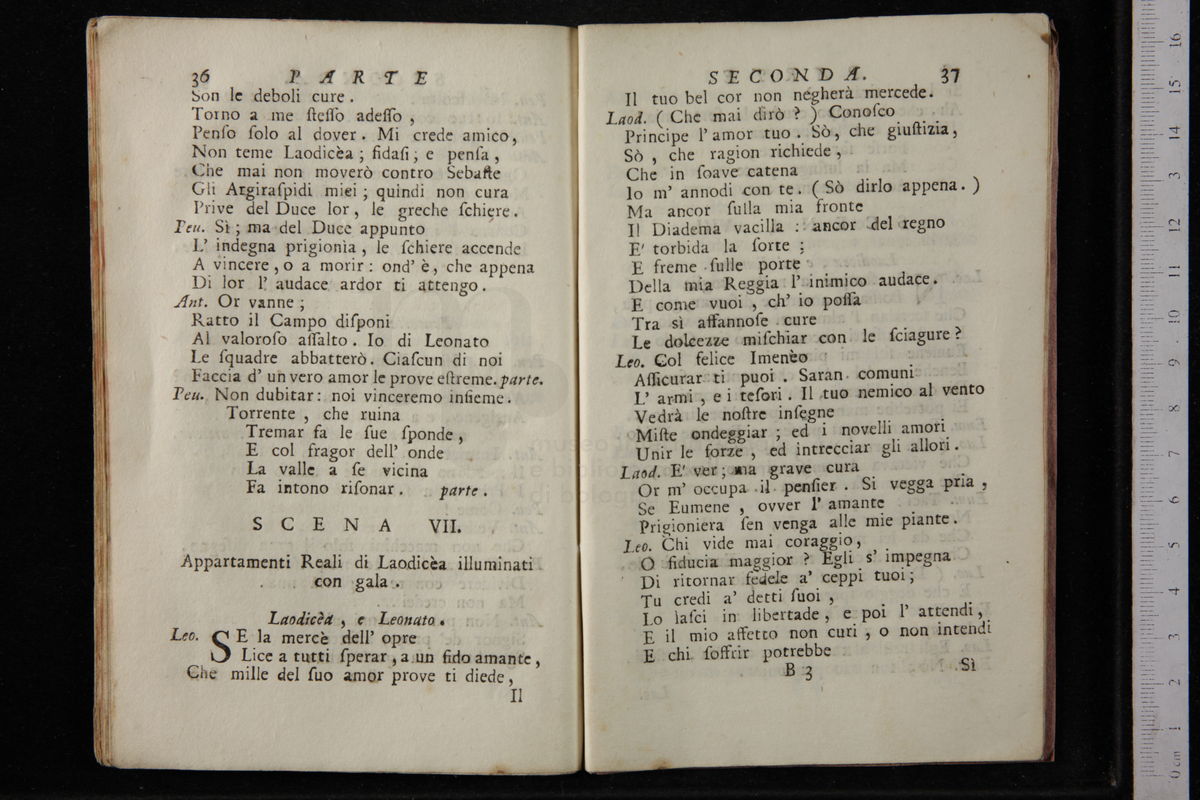 36 PARTE
Son le deboli cure.
Torno a me ſteſſo adeſſo,
Penſo ſolo al dover. Mi crede amico,
Non teme Laodicèa; fidaſi; e penſa,
Che mai non moverò contro Sebaſte
Gli Argiraſpidi miei; quindi non cura
Prive del Duce lor, le greche ſchiere.
Peu. Sì; ma del Duce appunto
L' indegna prigionia, le ſchiere accende
A vincere, o a morir: ond' è, che appena
Di lor l' audace ardor ti attengo.
Ant. Or vanne;
Ratto il Campo diſponi
Al valoroſo aſſalto. Io di Leonato
Le ſquadre abbatterò. Ciaſcun di noi
Faccia d' un vero amor le prove eſtreme. parte.
Peu. Non dubitar: noi vinceremo inſieme.
Torrente, che ruina
Tremar fa le ſue ſponde,
E col fragor dell' onde
La valle a ſe vicina
Fa intono riſonar. parte.
SCENA VII.
Appartamenti Reali di Laodicèa illuminati
con gala.
Laodicèa, e Leonato.
Leo. SE la mercè dell' opre
Lice a tutti ſperar, a un fido amante,
Che mille del ſuo amor prove ti diede,
Il
SECONDA. 37
Il tuo bel cor non negherà mercede.
Laod. (Che mai dirò?) Conoſco
Principe l' amor tuo. Sò, che giuſtizia,
Sò, che ragion richiede,
Che in ſoave catena
Io m' annodi con te. (Sò dirlo appena.)
Ma ancor ſulla mia fronte
Il Diadema vacilla: ancor del regno
E' torbida la ſorte;
E freme ſulle porte
Della mia Reggia l' inimico audace.
E come vuoi, ch' io poſſa
Tra sì affannoſe cure
Le dolcezze miſchiar con le ſciagure?
Leo. Col felice Imenèo
Aſſicurar ti puoi. Saran comuni
L' armi, e i teſori. Il tuo nemico al vento
Vedrà le noſtre inſegne
Miſte ondeggiar; ed i novelli amori
Unir le forze, ed intrecciar gli allori.
Laod. E' ver; ma grave cura
Or m' occupa il penſier. Si vegga pria,
Se Eumene, ovver l' amante
Prigioniera ſen venga alle mie piante.
Leo. Chi vide mai coraggio,
O fiducia maggior? Egli s' impegna
Di ritornar fedele a' ceppi tuoi;
Tu credi a' detti ſuoi,
Lo laſci in libertade, e poi l' attendi,
E il mio affetto non curi, o non intendi
E chi ſoffrir potrebbe
B 3 Sì
0 cm 1 2 3 4 5 6 7 8 9 10 11 12 13 14 15 16